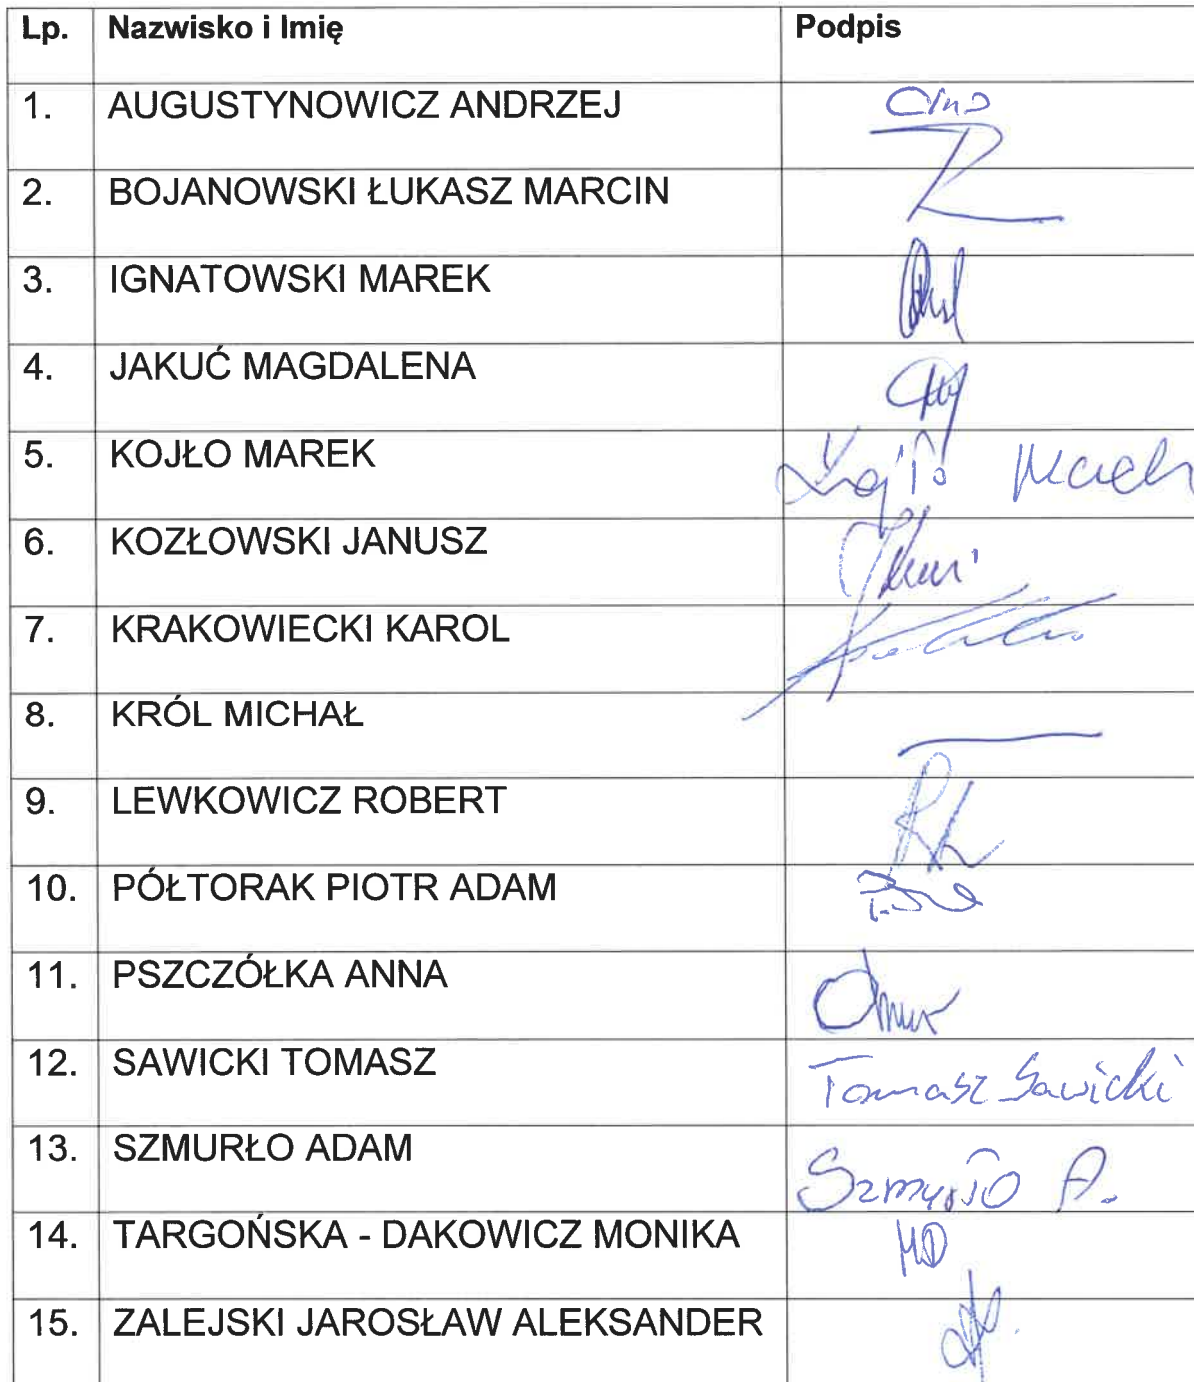 Lp. Nazwisko i Imię Podpis
1. AUGUSTYNOWICZ ANDRZEJ
2. BOJANOWSKI ŁUKASZ MARCIN
3. IGNATOWSKI MAREK
4. JAKUĆ MAGDALENA
5. KOJŁO MAREK Kojło Marek
6. KOZŁOWSKI JANUSZ
7. KRAKOWIECKI KAROL
8. KRÓL MICHAŁ
9. LEWKOWICZ ROBERT
10. PÓŁTORAK PIOTR ADAM
11. PSZCZÓŁKA ANNA
12. SAWICKI TOMASZ Tomasz Sawicki
13. SZMURŁO ADAM Szmurło A.
14. TARGOŃSKA - DAKOWICZ MONIKA MD
15. ZALEJSKI JAROSŁAW ALEKSANDER